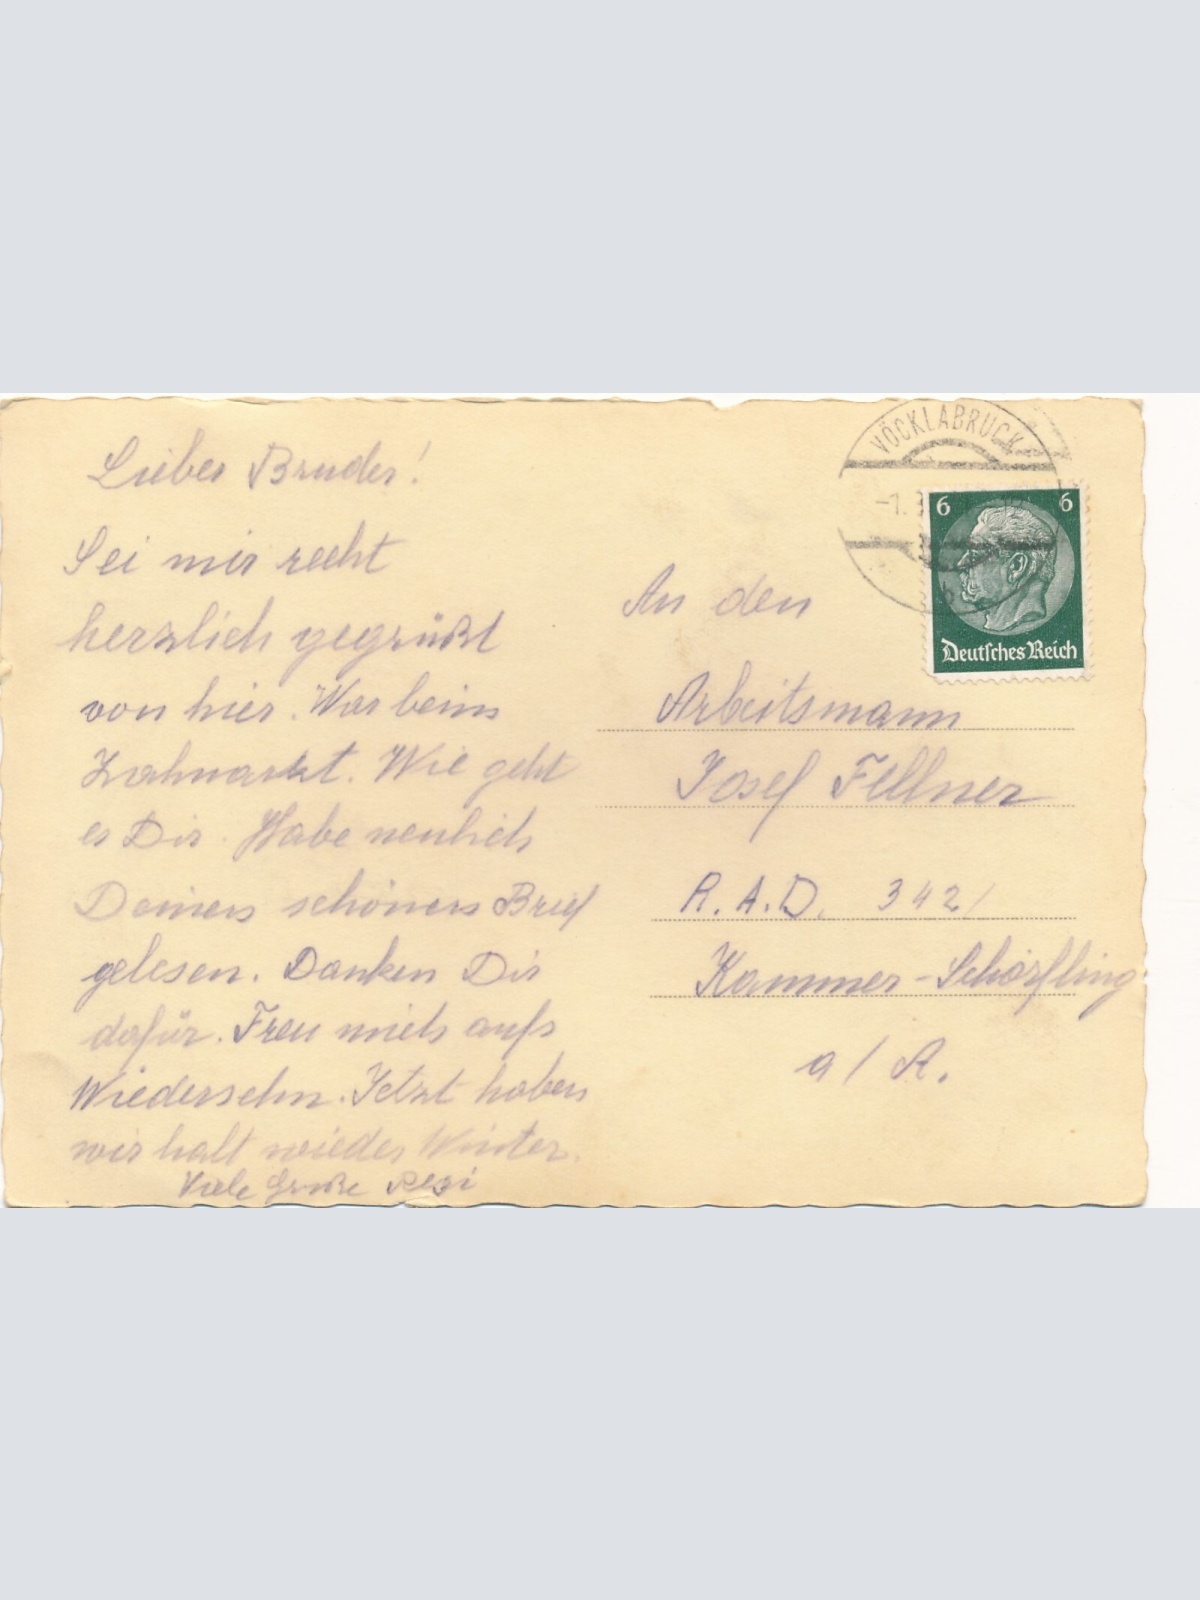 Lieber Bruder!
Sei mir recht
herzlich gegrüßt
von hier. War beim
Zahnarzt. Wie geht
es Dir. Habe neulich
Deinen schönen Brief
gelesen. Danken Dir
dafür. Freu mich aufs
Wiedersehn. Jetzt haben
wir halt wieder Winter.
Viele Grüße Resi
VÖCKLABRUCK
-1.
6 6
Deutsches Reich
An den
Arbeitsmann
Josef Fellner
R.A.D. 342/
Kammer-Schörfling
a/ A.